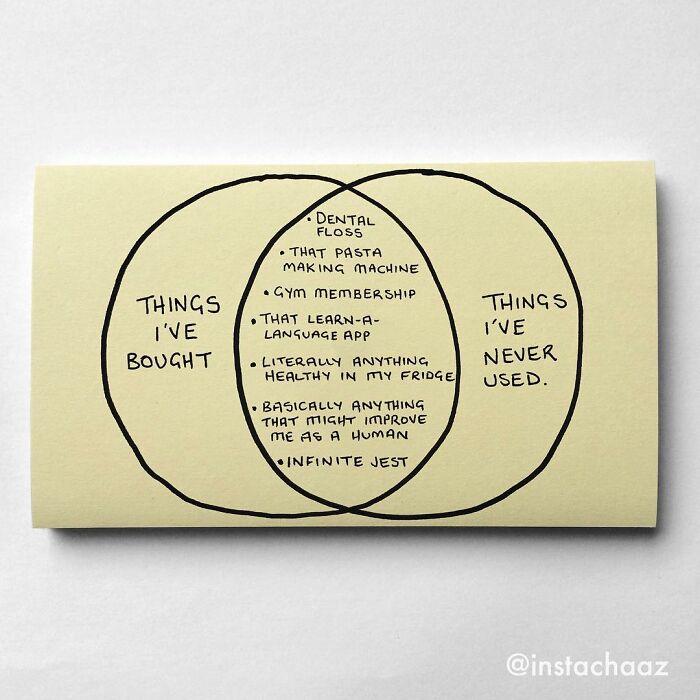 THINGS
I'VE
BOUGHT
• DENTAL
FLOSS
• THAT PASTA
MAKING MACHINE
• GYM MEMBERSHIP
• THAT LEARN-A-
LANGUAGE APP
• LITERALLY ANYTHING
HEALTHY IN MY FRIDGE
• BASICALLY ANYTHING
THAT MIGHT IMPROVE
ME AS A HUMAN
• INFINITE JEST
THINGS
I'VE
NEVER
USED.
@instachaaz